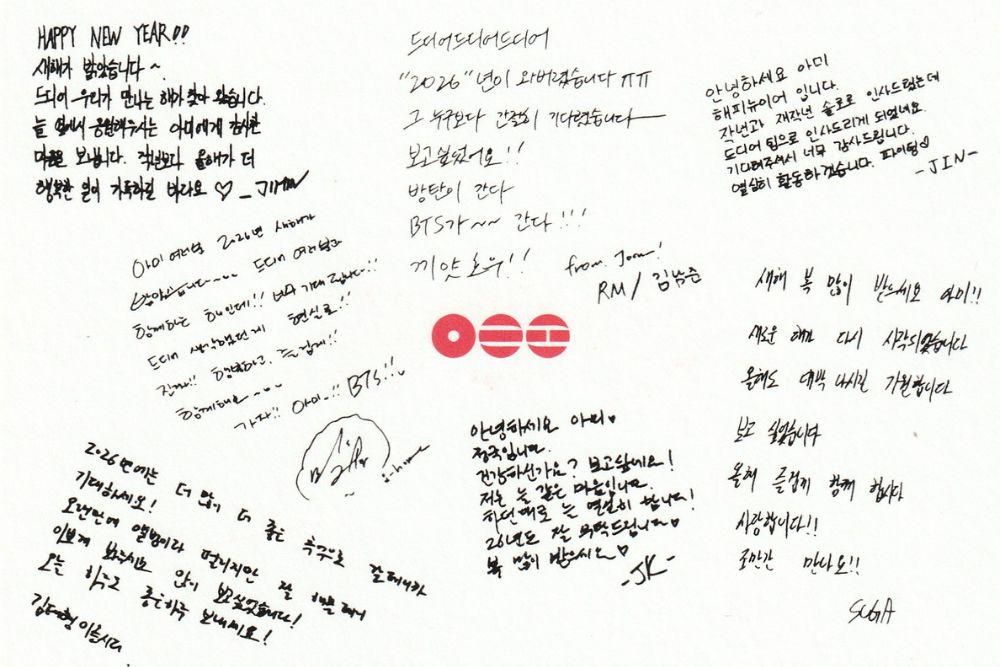 HAPPY NEW YEAR!!
새해가 밝았습니다~
드디어 우리가 만나는 해가 찾아 왔습니다.
늘 옆에서 응원해주시는 아미에게 감사한
마음을 보냅니다. 작년보다 올해가 더
행복한 일이 가득하길 바라요♡ _JIMIN
드디어드디어드디어
"2026"년이 와버렸습니다 ㅠㅠ
그 누구보다 간절히 기다렸습니다
보고싶었어요!!
방탄이 간다
BTS가~~ 간다!!!
끼얏호우!!
from. Joon!
RM / 김남준
안녕하세요 아미
해피뉴이어 입니다.
작년과 재작년 솔로로 인사드렸는데
드디어 팀으로 인사드리게 되었네요.
기다려주셔서 너무 감사드립니다.
열심히 활동하겠습니다. 파이팅♡
-JIN-
아미 여러분 2026년 새해가
밝았습니다~~ 드디어 여러분과
함께하는 해인데!! 너무 기대됩니다!!
드디어 생각했던게 현실로!!
진짜!! 행복하고, 즐겁게!!
함께해요~~
가자!! 아미~!! BTS!!
j-hope
새해 복 많이 받으세요 아미!!
새로운 해가 다시 시작되었습니다
올해도 대박 나시길 기원합니다
보고 싶었습니다
올해 즐겁게 함께 합시다
사랑합니다!!
조만간 만나요!!
SUGA
안녕하세요 아미♥
정국입니다.
건강하신가요? 보고싶네요!
저는 늘 같은 마음입니다.
하던대로 늘 열심히 합니다!
26년도 잘 부탁드립니다♥
복 많이 받으시오♡
-JK-
2026년에는 더 많이 더 좋은 추억으로 갈테니까
기대하세요!
오랜만에 앨범이라 떨리지만 잘 해볼테니
이쁘게 봐주시요 많이 보고싶었습니다!
오늘 하루도 좋은하루 보내세요!
김태형이올시다